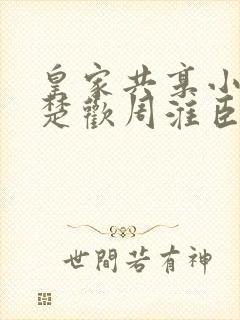 皇家共享小
楚歡周淮臣
世間若有神